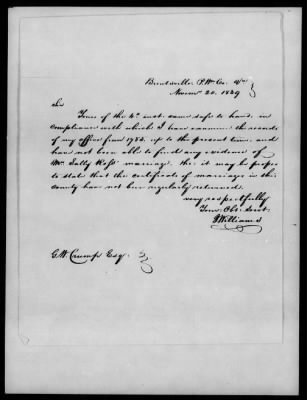 Brentsville P. Wm Co. Va
Novem 20. 1849
Sir
Yours of the 4th inst. came safe to hand, in
compliance with which I have examined the records
of my office from 1783 up to the present time, and
have not been able to find any evidence of
Mrs. Sally Ross' marriage. tho it may be proper
to state that the certificates of marriages in this
county have not been regularly returned.
very respectfully
Your Obt. Servt.
Williams
G. W. Crump Esq.